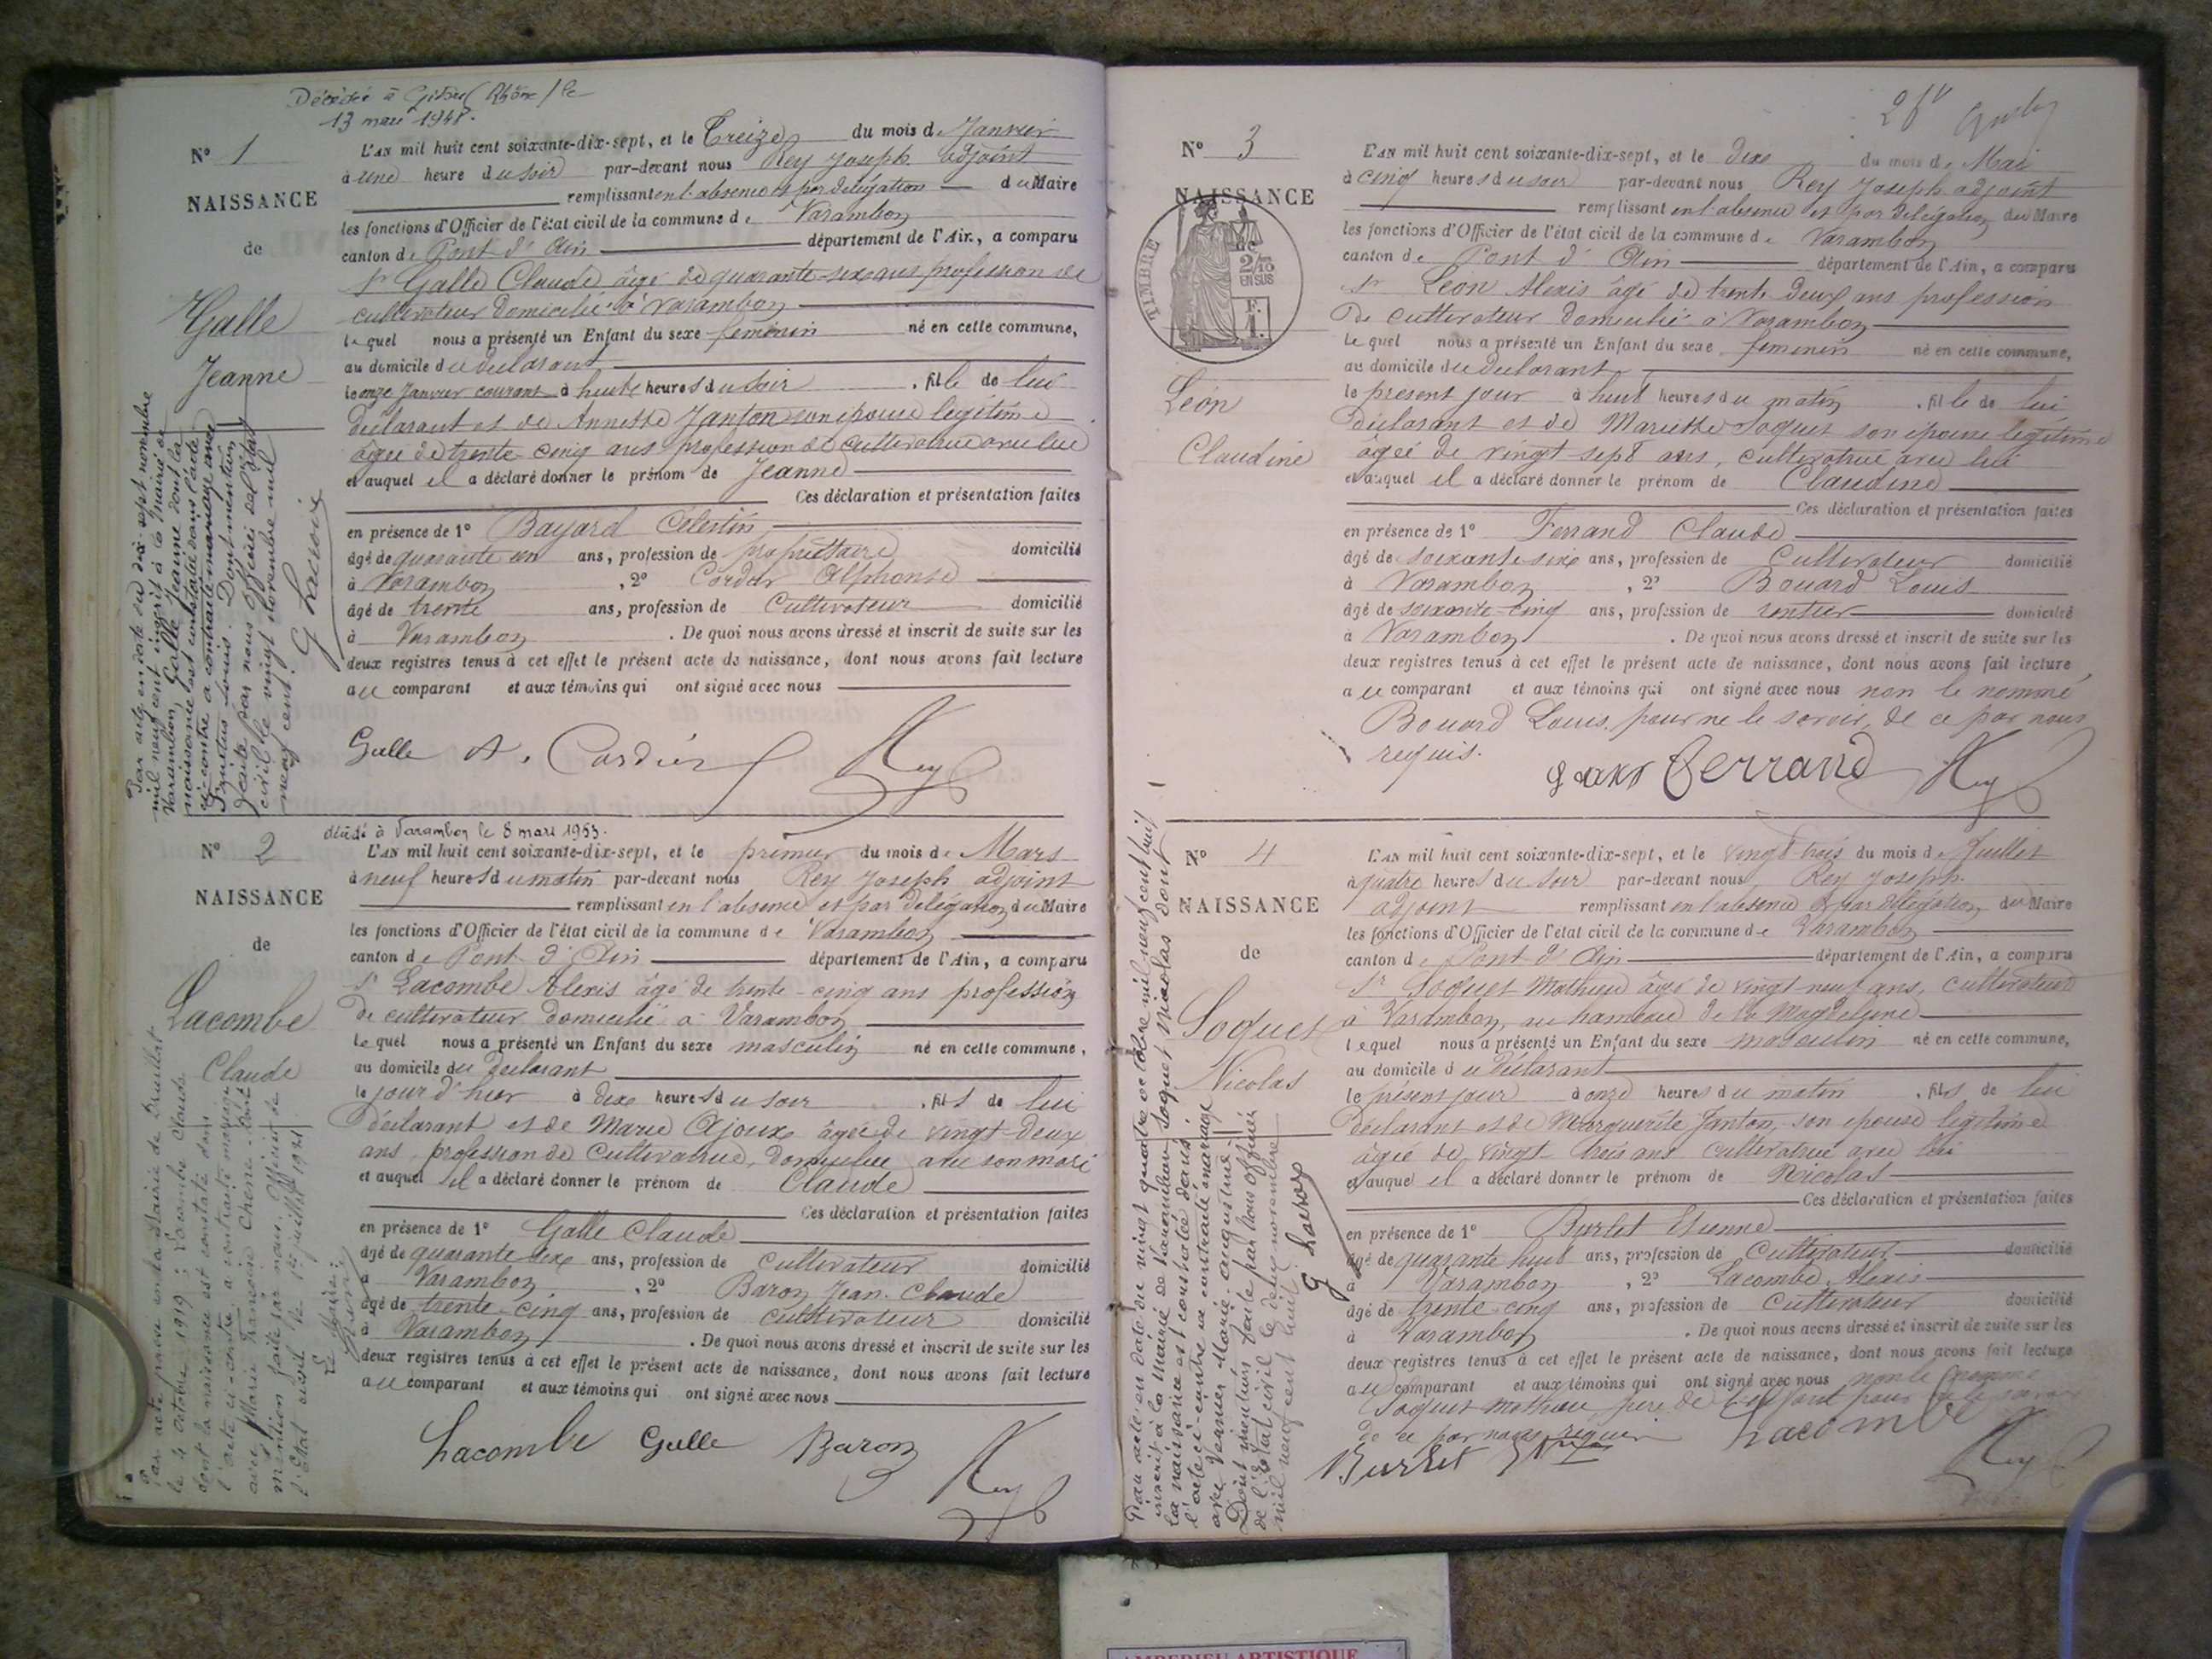 Décédée à Givors (Rhône) le
13 mai 1948.
N° 1
NAISSANCE
de
Galle
Jeanne
L'AN mil huit cent soixante-dix-sept, et le Treize du mois de Janvier
à une heure du soir par-devant nous Rey Joseph adjoint
remplissant en l'absence et par délégation du Maire
les fonctions d'Officier de l'état civil de la commune de Varambon
canton de Pont d'Ain département de l'Ain, a comparu
Sr Galle Claude âgé de quarante-six ans profession de
cultivateur domicilié à Varambon
lequel nous a présenté un Enfant du sexe féminin né en cette commune,
au domicile du déclarant
le onze Janvier courant à huit heures du soir , fille de lui
déclarant et de Annette Janton son épouse légitime
âgée de trente-cinq ans profession de cultivatrice avec lui
et auquel il a déclaré donner le prénom de Jeanne
Ces déclaration et présentation faites
en présence de 1° Bayard Célestin
âgé de quarante un ans, profession de propriétaire domicilié
à Varambon , 2° Cordier Alphonse
âgé de trente ans, profession de Cultivateur domicilié
à Varambon . De quoi nous avons dressé et inscrit de suite sur les
deux registres tenus à cet effet le présent acte de naissance, dont nous avons fait lecture
au comparant et aux témoins qui ont signé avec nous
Galle A. Cordier Rey
Par acte en date du dix-sept novembre
mil neuf cent inscrit à la mairie de
Varambon, Galle Jeanne dont la
naissance est constatée dans l'acte
ci-contre a contracté mariage avec
Louis. Dont mention
faite par nous Officier de l'état
civil le vingt novembre mil
neuf cent.
G Lacroix
décédé à Varambon le 8 mars 1953.
N° 2
NAISSANCE
de
Lacombe
Claude
L'AN mil huit cent soixante-dix-sept, et le premier du mois de Mars
à neuf heures du matin par-devant nous Rey Joseph adjoint
remplissant en l'absence et par délégation du Maire
les fonctions d'Officier de l'état civil de la commune de Varambon
canton de Pont d'Ain département de l'Ain, a comparu
Sr Lacombe Alexis âgé de trente-cinq ans profession
de cultivateur domicilié à Varambon
lequel nous a présenté un Enfant du sexe masculin né en cette commune,
au domicile du déclarant
le jour d'hier à dixe heures du soir , fils de lui
déclarant et de Marie Ajoux âgée de vingt-deux
ans, profession de Cultivatrice, domiciliée avec son mari
et auquel il a déclaré donner le prénom de Claude
Ces déclaration et présentation faites
en présence de 1° Galle Claude
âgé de quarante-six ans, profession de Cultivateur domicilié
à Varambon , 2° Baron Jean-Claude
âgé de trente-cinq ans, profession de cultivateur domicilié
à Varambon . De quoi nous avons dressé et inscrit de suite sur les
deux registres tenus à cet effet le présent acte de naissance, dont nous avons fait lecture
au comparant et aux témoins qui ont signé avec nous
Lacombe Galle Baron Rey
Par acte passé en la Mairie de Druillat
le 4 Octobre 1919 : Lacombe Claude
dont la naissance est constatée dans
l'acte ci-contre, a contracté mariage
avec Marie Françoise
mention faite par nous, Officier de
l'Etat civil le 1er juillet 1921
Le Maire:
N° 3
NAISSANCE
de
TIMBRE
2/10
EN SUS
Léon
Claudine
L'AN mil huit cent soixante-dix-sept, et le dixe du mois de Mai
à cinq heures du soir par-devant nous Rey Joseph adjoint
remplissant en l'absence et par délégation du Maire
les fonctions d'Officier de l'état civil de la commune de Varambon
canton de Pont d'Ain département de l'Ain, a comparu
Sr Léon Alexis âgé de trente-deux ans profession
de cultivateur domicilié à Varambon
lequel nous a présenté un Enfant du sexe féminin né en cette commune,
au domicile du déclarant
le présent jour à huit heures du matin , fille de lui
déclarant et de Mariette Soquet son épouse légitime
âgée de vingt-sept ans, cultivatrice avec lui
et auquel il a déclaré donner le prénom de Claudine
Ces déclaration et présentation faites
en présence de 1° Ferrand Claude
âgé de soixante-six ans, profession de Cultivateur domicilié
à Varambon , 2° Bouard Louis
âgé de soixante-cinq ans, profession de rentier domicilié
à Varambon . De quoi nous avons dressé et inscrit de suite sur les
deux registres tenus à cet effet le présent acte de naissance, dont nous avons fait lecture
au comparant et aux témoins qui ont signé avec nous non le nommé
Bouard Louis, pour ne le savoir, de ce par nous
requis.
Ferrand Rey
N° 4
NAISSANCE
de
Soquet
Nicolas
L'AN mil huit cent soixante-dix-sept, et le vingt-trois du mois de Juillet
à quatre heures du soir par-devant nous Rey Joseph
adjoint remplissant en l'absence & par délégation du Maire
les fonctions d'Officier de l'état civil de la commune de Varambon
canton de Pont d'Ain département de l'Ain, a comparu
Sr Soquet Mathieu âgé de vingt-neuf ans, cultivateur
à Varambon, au hameau de la Magdeleine
lequel nous a présenté un Enfant du sexe masculin né en cette commune,
au domicile du déclarant
le présent jour à onze heures du matin , fils de lui
déclarant et de Marguerite Janton, son épouse légitime
âgée de vingt-trois ans cultivatrice avec lui
et auquel il a déclaré donner le prénom de Nicolas
Ces déclaration et présentation faites
en présence de 1° Burlet Etienne
âgé de quarante-huit ans, profession de Cultivateur domicilié
à Varambon , 2° Lacombe Alexis
âgé de trente-cinq ans, profession de Cultivateur domicilié
à Varambon . De quoi nous avons dressé et inscrit de suite sur les
deux registres tenus à cet effet le présent acte de naissance, dont nous avons fait lecture
au comparant et aux témoins qui ont signé avec nous non le nommé
Soquet Mathieu, père de l'enfant pour ne le savoir
de ce par nous requis Lacombe
Burlet Rey
Par acte en date du vingt quatre octobre mil neuf cent huit
inscrit à la mairie de Varambon Soquet Nicolas dont
la naissance est constatée dans
l'acte ci-contre a contracté mariage
avec Marie
Dont mention faite par nous officier
de l'état civil le deux novembre
mil neuf cent huit.
G Lacroix
AMBERIEU ARTISTIQUE